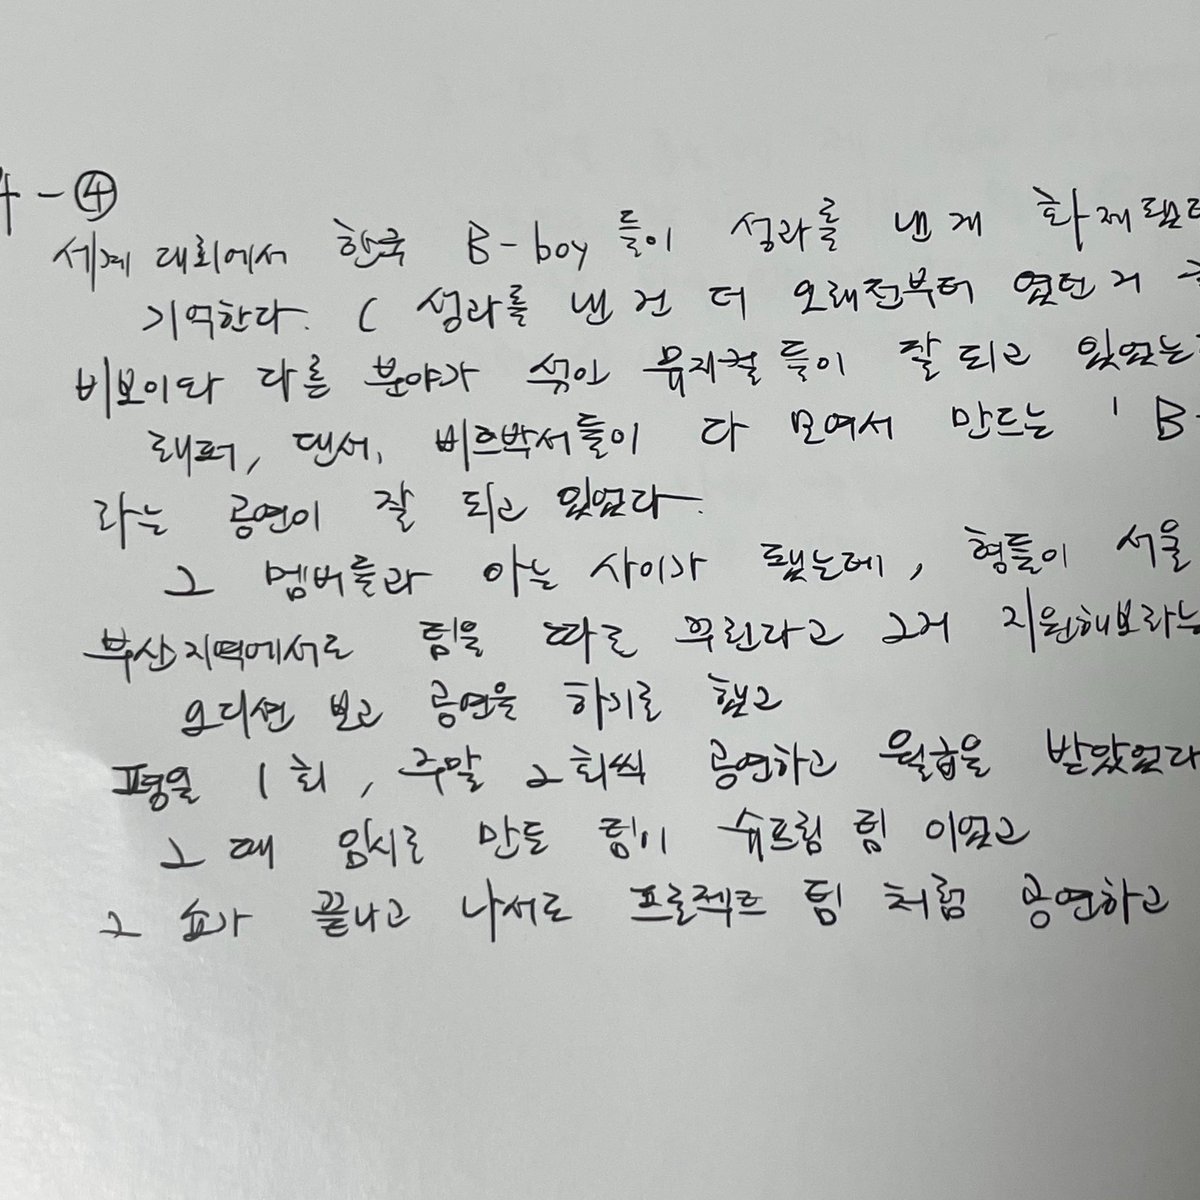 4-④
세계 대회에서 한국 B-boy들이 성과를 낸게 화제됐던
기억한다. ( 성과를 낸 건 더 오래전부터 였던거
비보이와 다른 분야가 섞인 뮤지컬들이 잘 되고 있었는
래퍼, 댄서, 비트박서들이 다 모여서 만드는 ' B-
라는 공연이 잘 되고 있었다.
그 멤버들과 아는 사이가 됐는데, 형들이 서울
부산지역에서도 팀을 따로 꾸린다고 그거 지원해보라는
오디션 보고 공연을 하기로 했고
평일 1회, 주말 2회씩 공연하고 월급을 받았었다
그 때 임시로 만든 팀이 슈프림 팀 이었고
그 쇼가 끝나고 나서도 프로젝트 팀 처럼 공연하고